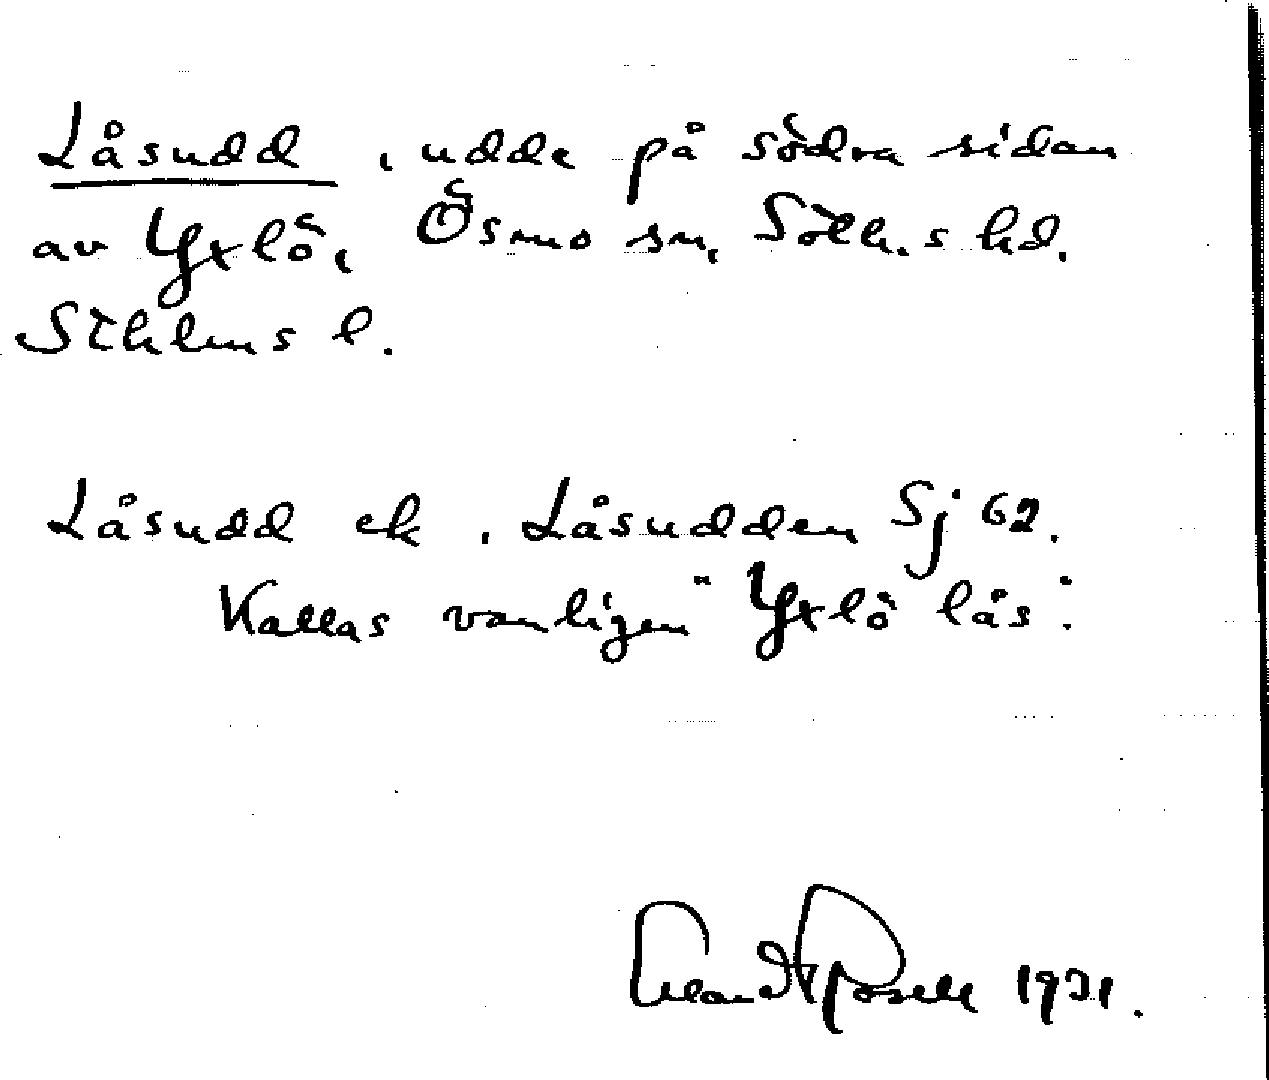 Låsudd, udde på södra sidan
av Yxlö, Ösmo sn, Söth.s hd.
Sthlms l.
Låsudd ek, Låsudden Sj 62.
Kallas vanligen "Yxlö lås".
Erland Rosell 1931.